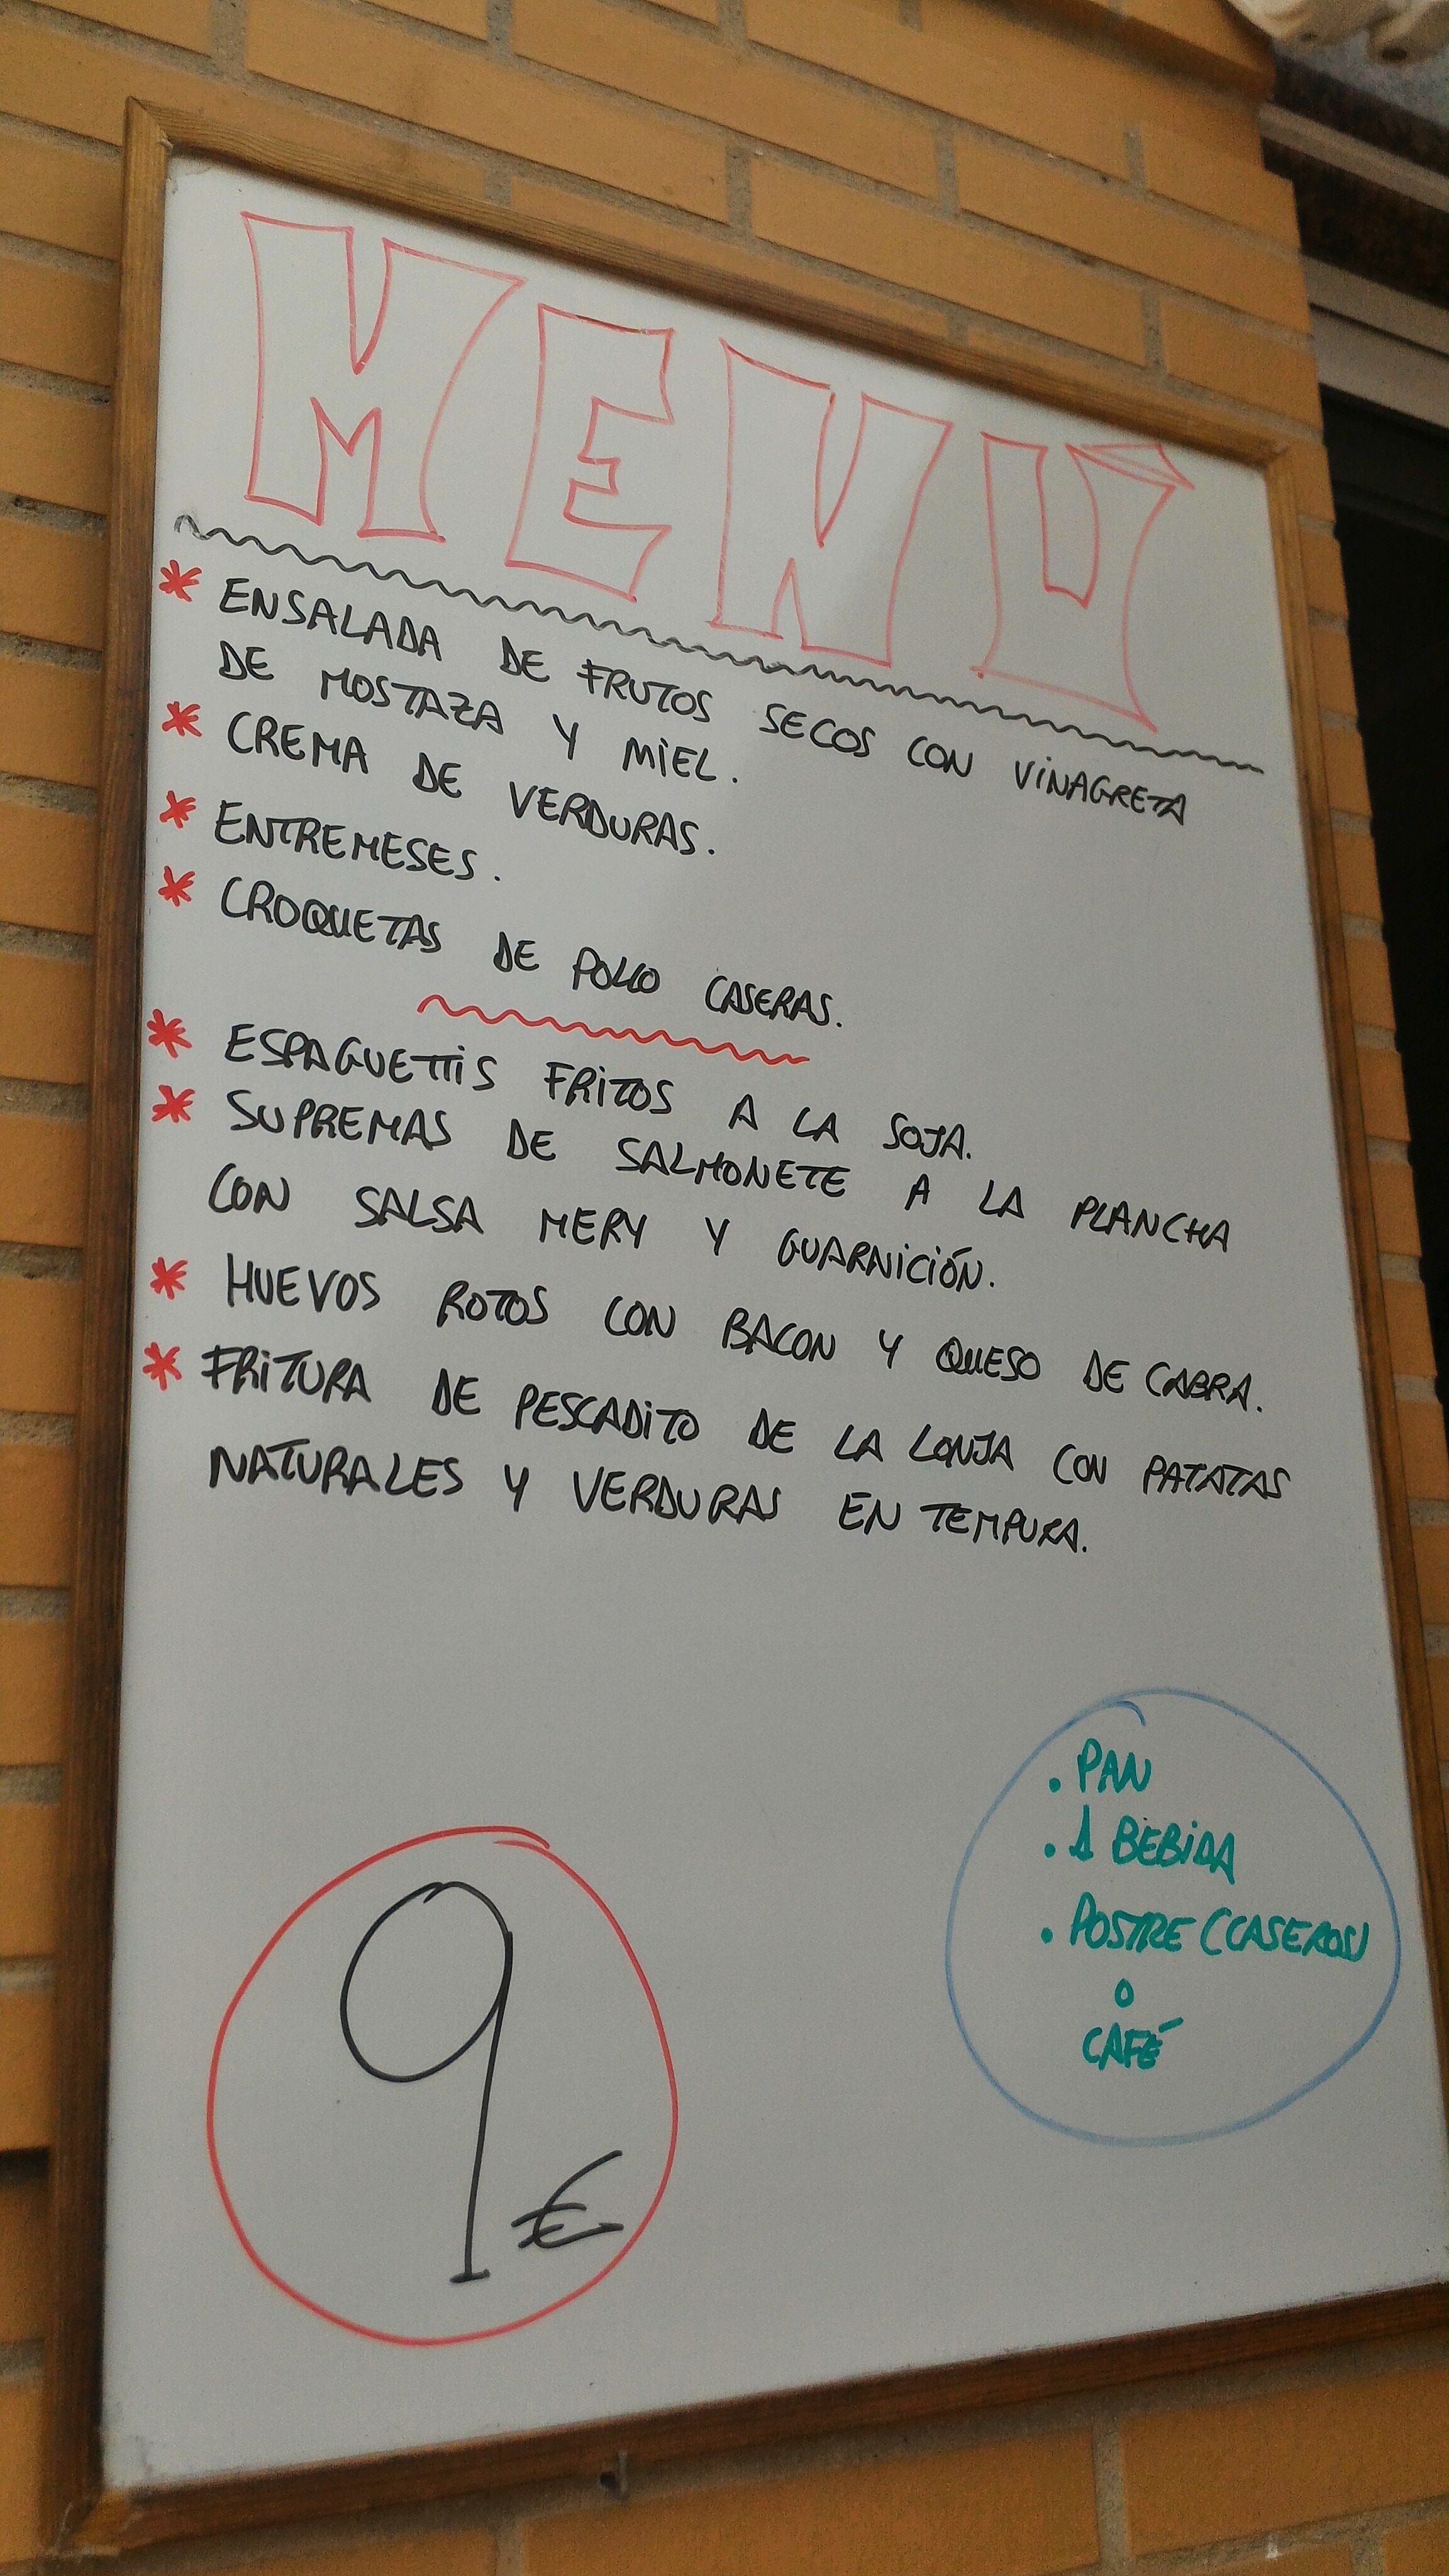 MENÚ
* ENSALADA DE FRUTOS SECOS CON VINAGRETA
DE MOSTAZA Y MIEL.
* CREMA DE VERDURAS.
* ENTREMESES.
* CROQUETAS DE POLLO CASERAS.
* ESPAGUETTIS FRITOS A LA SOJA.
* SUPREMAS DE SALMONETE A LA PLANCHA
CON SALSA MERY Y GUARNICIÓN.
* HUEVOS ROTOS CON BACON Y QUESO DE CABRA.
* FRITURA DE PESCADITO DE LA LONJA CON PATATAS
NATURALES Y VERDURAS EN TEMPURA.
. PAN
. 1 BEBIDA
. POSTRE (CASEROS)
O
CAFÉ
9€